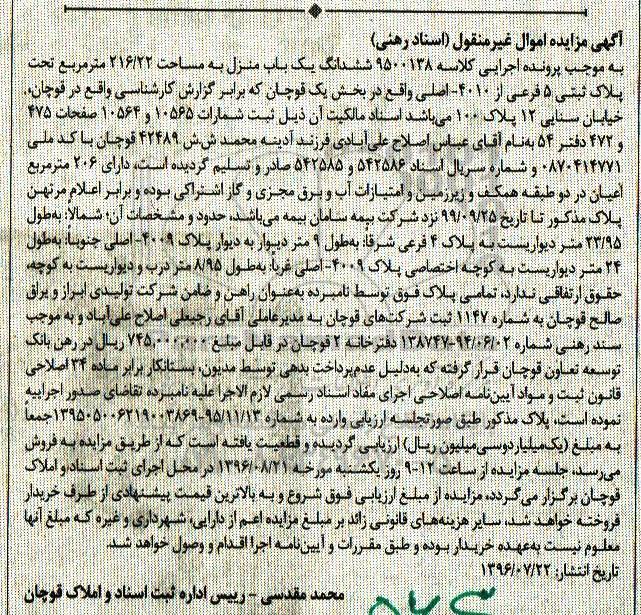 آگهی مزایده اموال غیرمنقول (اسناد رهنی)
به موجب پرونده اجرایی کلاسه ۹۵۰۰۱۳۸ ششدانگ یک باب منزل به مساحت ۲۱۶/۲۲ مترمربع تحت
پلاک ثبتی ۵ فرعی از ۴۰۱۰- اصلی واقع در بخش یک قوچان که برابر گزارش کارشناسی واقع در قوچان،
خیابان سنایی ۱۲ پلاک ۱۰۰ می‌باشد اسناد مالکیت آن ذیل ثبت شمارات ۱۰۵۶۵ و ۱۰۵۶۴ صفحات ۴۷۵
و ۴۷۲ دفتر ۵۴ به‌نام آقای عباس اصلاح علی‌آبادی فرزند آدینه محمد ش‌ش ۴۲۴۸۹ قوچان با کد ملی
۰۸۷۰۴۱۴۷۷۱ و شماره سریال اسناد ۵۴۲۵۸۶ و ۵۴۲۵۸۵ صادر و تسلیم گردیده است، دارای ۲۰۶ مترمربع
اعیان در دو طبقه همکف و زیرزمین و امتیازات آب و برق مجزی و گاز اشتراکی بوده و برابر اعلام مرتهن
پلاک مذکور تا تاریخ ۹۹/۰۹/۲۵ نزد شرکت بیمه سامان بیمه می‌باشد، حدود و مشخصات آن؛ شمالا: به‌طول
۲۳/۹۵ متر دیواریست به پلاک ۴ فرعی شرقاً: به‌طول ۹ متر دیوار به دیوار پلاک ۴۰۰۹- اصلی جنوباً: به‌طول
۲۴ متر دیواریست به کوچه اختصاصی پلاک ۴۰۰۹- اصلی غرباً: به‌طول ۸/۹۵ متر درب و دیواریست به کوچه،
حقوق ارتفاقی ندارد، تمامی پلاک فوق توسط نامبرده به‌عنوان راهن و ضامن شرکت تولیدی ابزار و یراق
صالح قوچان به شماره ۱۱۴۷ ثبت شرکت‌های قوچان به مدیرعاملی آقای رجبعلی اصلاح علی‌آباد و به موجب
سند رهنی شماره ۱۳۸۷۴۷-۹۴/۰۶/۰۲ دفترخانه ۲ قوچان در قابل مبلغ ۷۴۵,۰۰۰,۰۰۰ ریال در رهن بانک
توسعه تعاون قوچان قرار گرفته که به‌دلیل عدم‌پرداخت بدهی توسط مدیون، بستانکار برابر ماده ۳۴ اصلاحی
قانون ثبت و مواد آیین‌نامه اصلاحی اجرای مفاد اسناد رسمی لازم الاجرا علیه نامبرده تقاضای صدور اجراییه
نموده است، پلاک مذکور طبق صورتجلسه ارزیابی وارده به شماره ۱۳۹۵۰۵۰۰۶۲۱۹۰۰۳۸۶۹-۹۵/۱۱/۱۳جمعاً
به مبلغ (یک‌میلیاردوسی‌میلیون ریال) ارزیابی گردیده و قطعیت یافته است که از طریق مزایده به فروش
می‌رسد، جلسه مزایده از ساعت ۱۲-۹ روز یکشنبه مورخه ۱۳۹۶/۰۸/۲۱ در محل اجرای ثبت اسناد و املاک
قوچان برگزار می‌گردد، مزایده از مبلغ ارزیابی فوق شروع و به بالاترین قیمت پیشنهادی از طرف خریدار
فروخته خواهد شد، سایر هزینه‌های قانونی زائد بر مبلغ مزایده اعم از دارایی، شهرداری و غیره که مبلغ آنها
معلوم نیست به‌عهده خریدار بوده و طبق مقررات و آیین‌نامه اجرا اقدام و وصول خواهد شد.
تاریخ انتشار: ۱۳۹۶/۰۷/۲۲
محمد مقدسی - رییس اداره ثبت اسناد و املاک قوچان